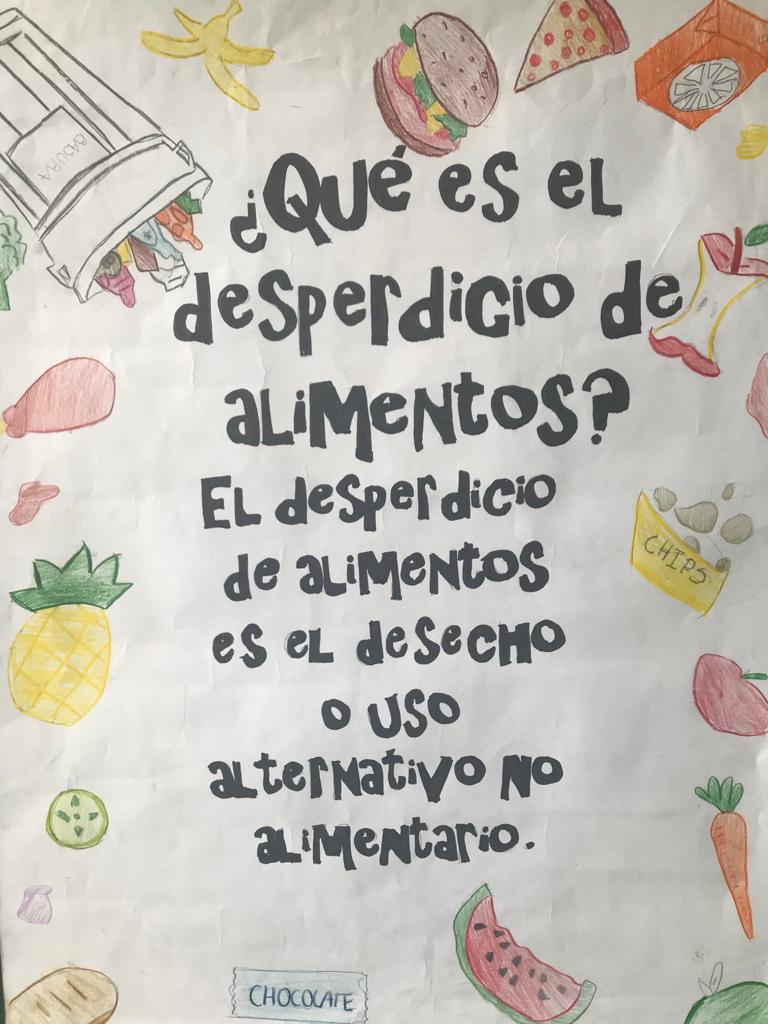 BADURA
¿Qué es el
desperdicio de
alimentos?
El desperdicio
de alimentos
es el desecho
o uso
alternativo no
alimentario.
CHIPS
CHOCOLATE